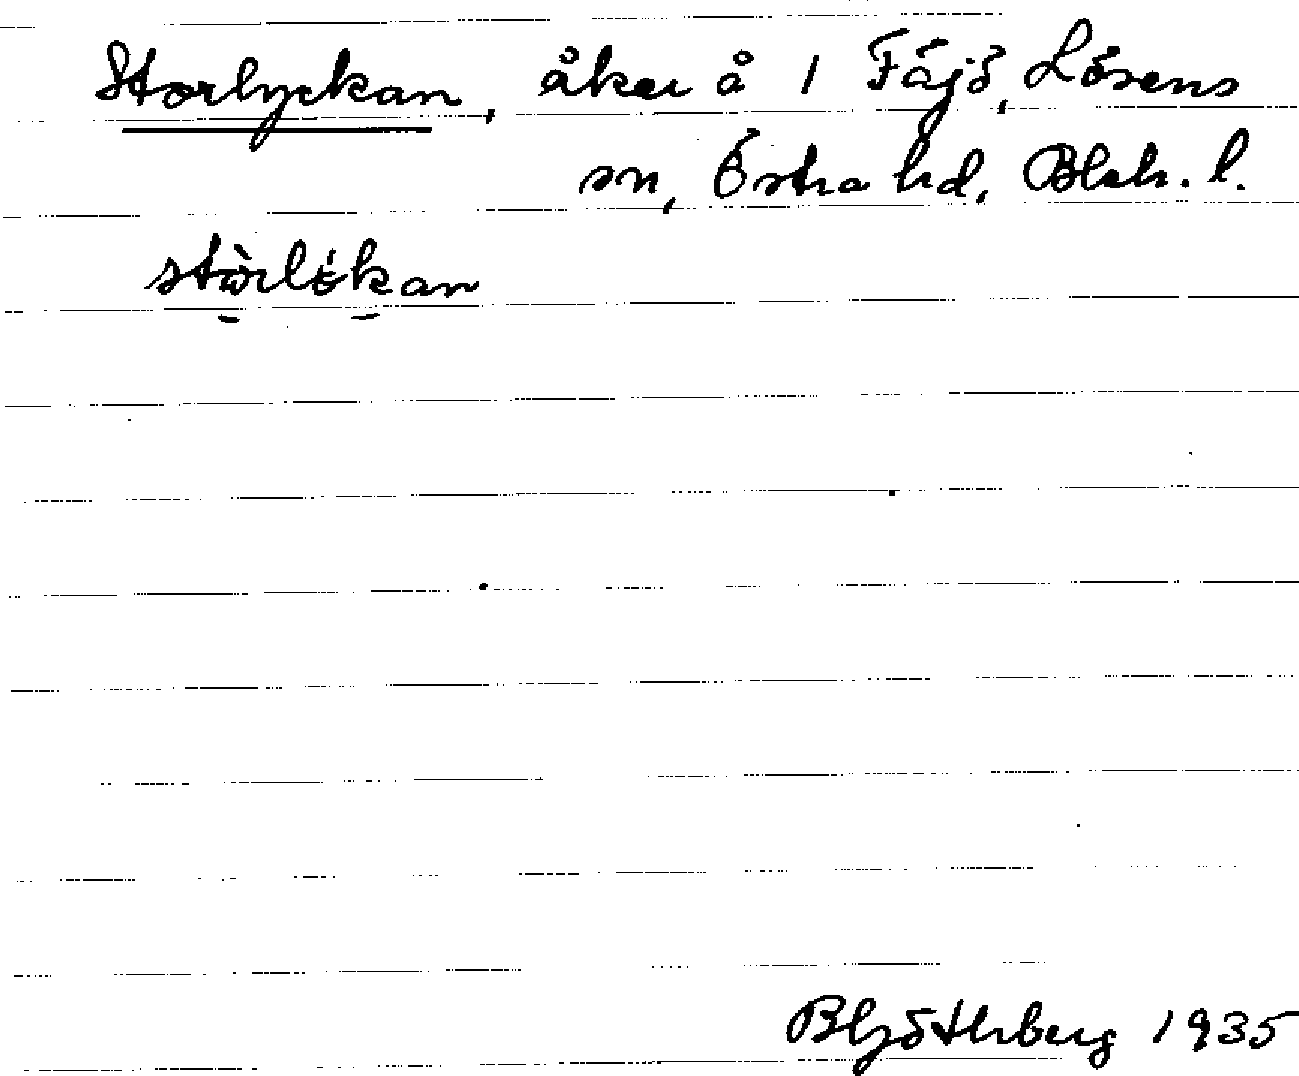 Storlyckan, åker å 1 Fäjö, Lösens
sn, Östra hd, Blek. l.
stòrlökan
1935